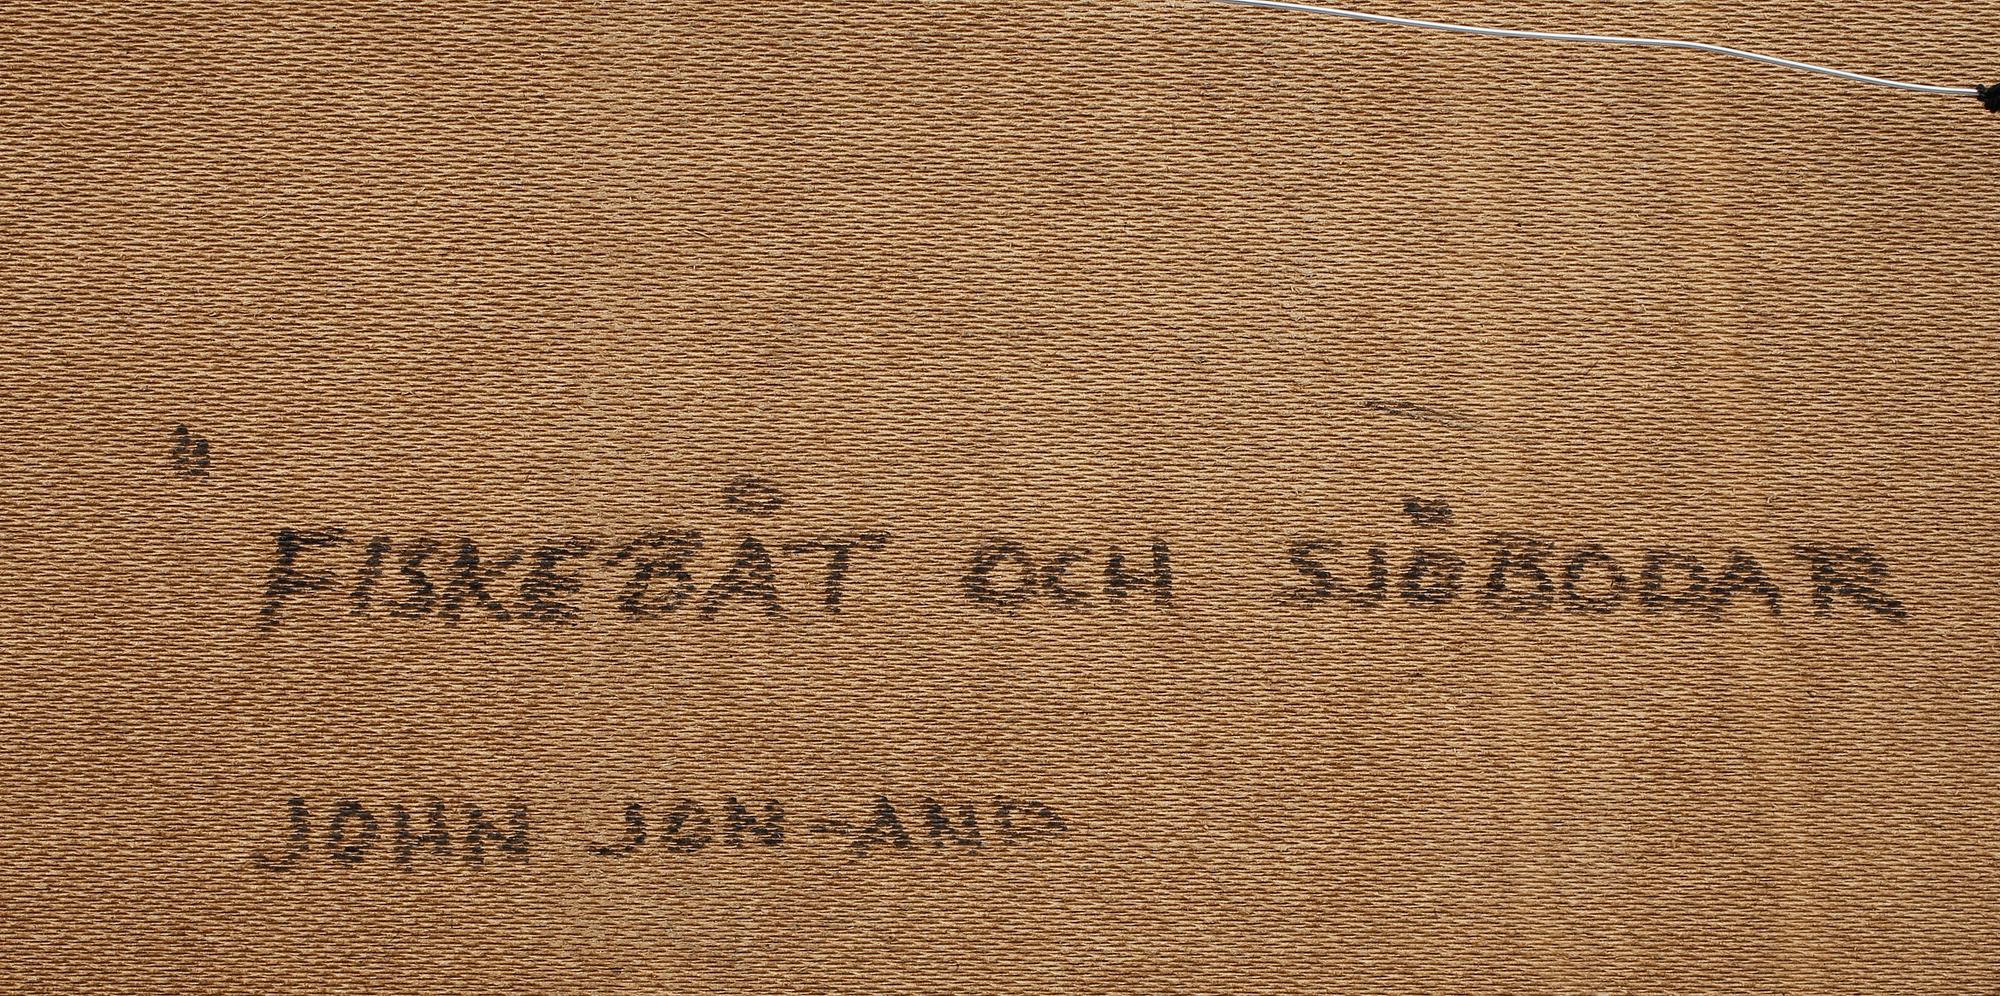 "FISKEBÅT OCH SJÖBODAR
JOHN JON-AND